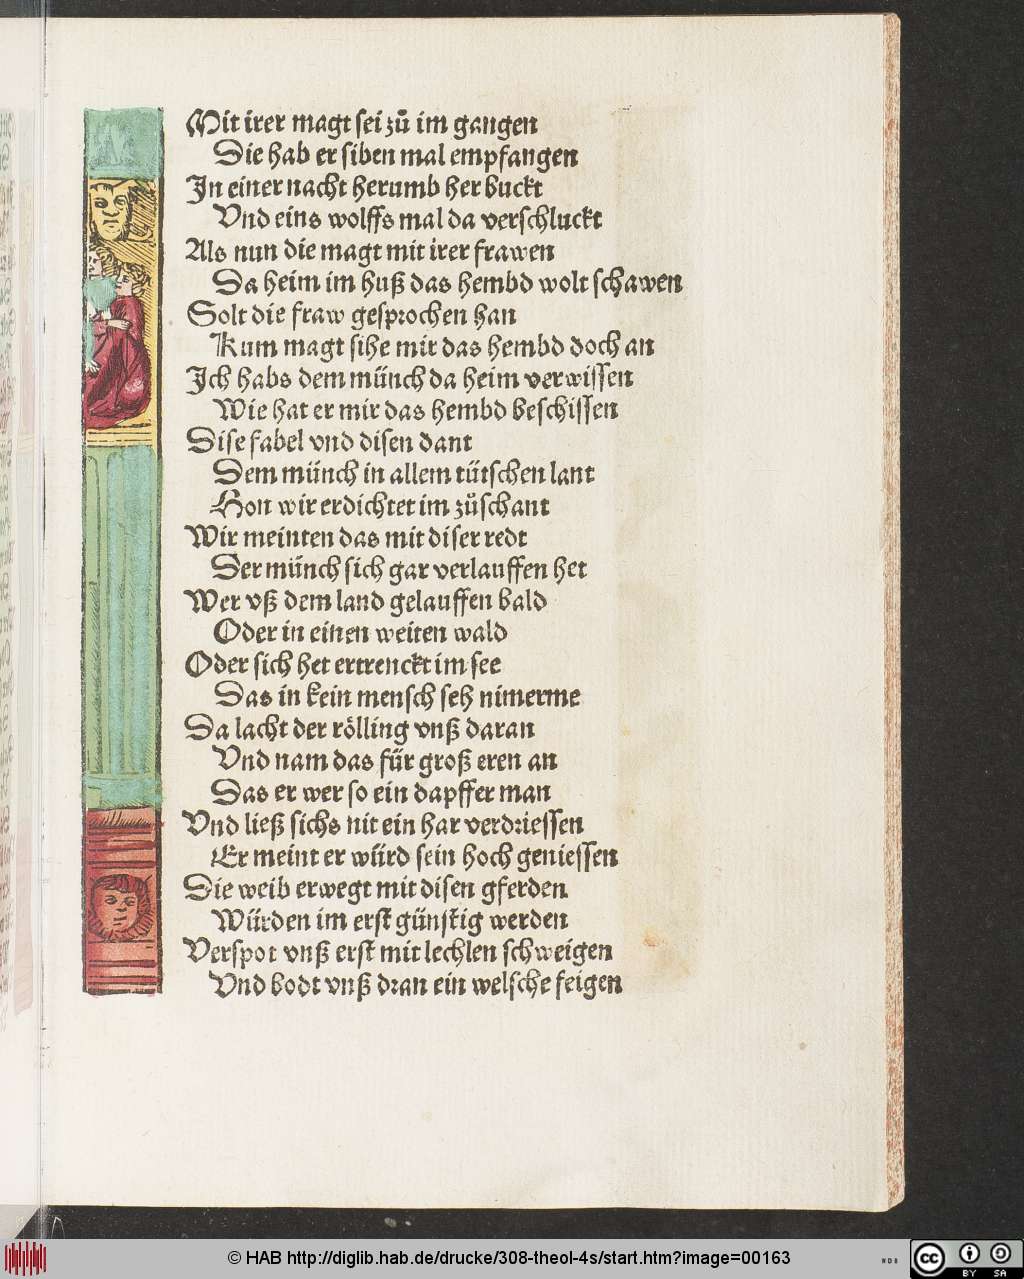 Mit irer magt sei zů im gangen
Die hab er siben mal empfangen
In einer nacht herumb her buckt
Vnd eins wolffs mal da verschluckt
Als nun die magt mit irer frawen
Da heim im huß das hembd wolt schawen
Solt die fraw gesprochen han
Kum magt sihe mir das hembd doch an
Ich habs dem münch da heim verwissen
Wie hat er mir das hembd beschissen
Dise fabel vnd disen dant
Dem münch in allem tütschen lant
Hon wir erdichtet im zůschant
Wir meinten das mit diser redt
Der münch sich gar verlauffen het
Wer vß dem land gelauffen bald
Oder in einen weiten wald
Oder sich het ertrenckt im see
Das in kein mensch seh nimerme
Da lacht der rölling vnß daran
Vnd nam das für groß eren an
Das er wer so ein dapffer man
Vnd ließ sichs nit ein har verdriessen
Er meint er würd sein hoch geniessen
Die weib erwegt mit disen gferden
Würden im erst günstig werden
Verspot vnß erst mit lechlen schweigen
Vnd bodt vnß dran ein welsche feigen
© HAB http://diglib.hab.de/drucke/308-theol-4s/start.htm?image=00163
WDB
cc BY SA